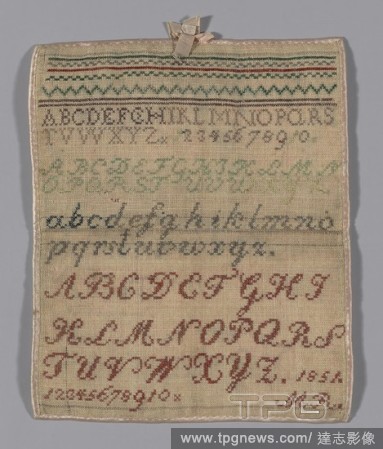 ABCDEFGHIKLMNOPQRS
TUVWXYZ. 234567890.
ABCDEFGHIKLMN
OPQRSTUVWXYZ
abcdefghiklmno
pqrstuvwxyz.
ABCDEFGHI
KLMNOPQRS
TUVWXYZ. 1851.
1234567890x
TPG
www.tpgnews.com/達志影像